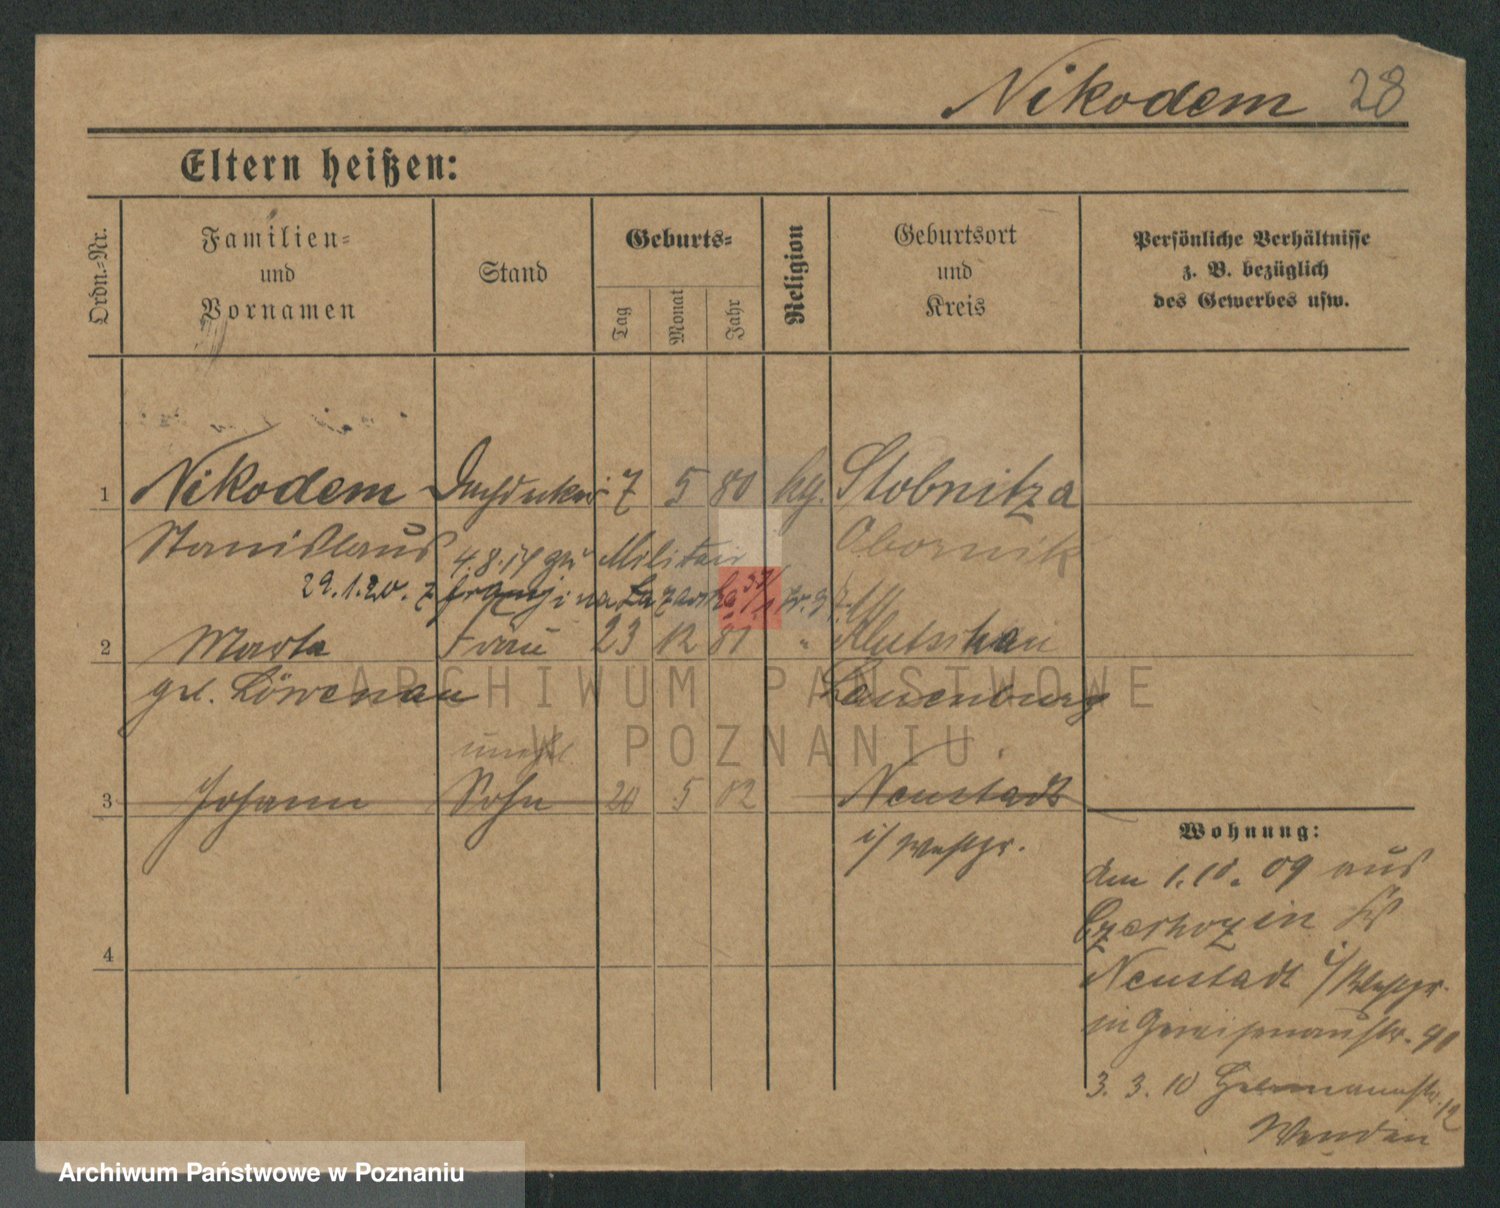 Nikodem 28
Eltern heißen:
Ordn.-Nr.
Familien-
und
Vornamen
Stand
Geburts-
Tag
Monat
Jahr
Religion
Geburtsort
und
Kreis
Persönliche Verhältnisse
z. B. bezüglich
des Gewerbes usw.
1 Nikodem Dachdecker 7 5 80 kg. Stobnitza
Stanislaus Obornik
4.8.14 zu Militair
29.1.20. z
2 Marta Frau 23 12 81 "
geb. Löwenau Lauenburg
unehel.
3 Johann Sohn 20 5 02 Neustadt
i/ Westpr.
4
Wohnung:
den 1.10.09 aus
Neustadt i/ Westpr.
in Gneisenaustr.
3.3.10
ARCHIWUM PAŃSTWOWE
W POZNANIU
Archiwum Państwowe w Poznaniu